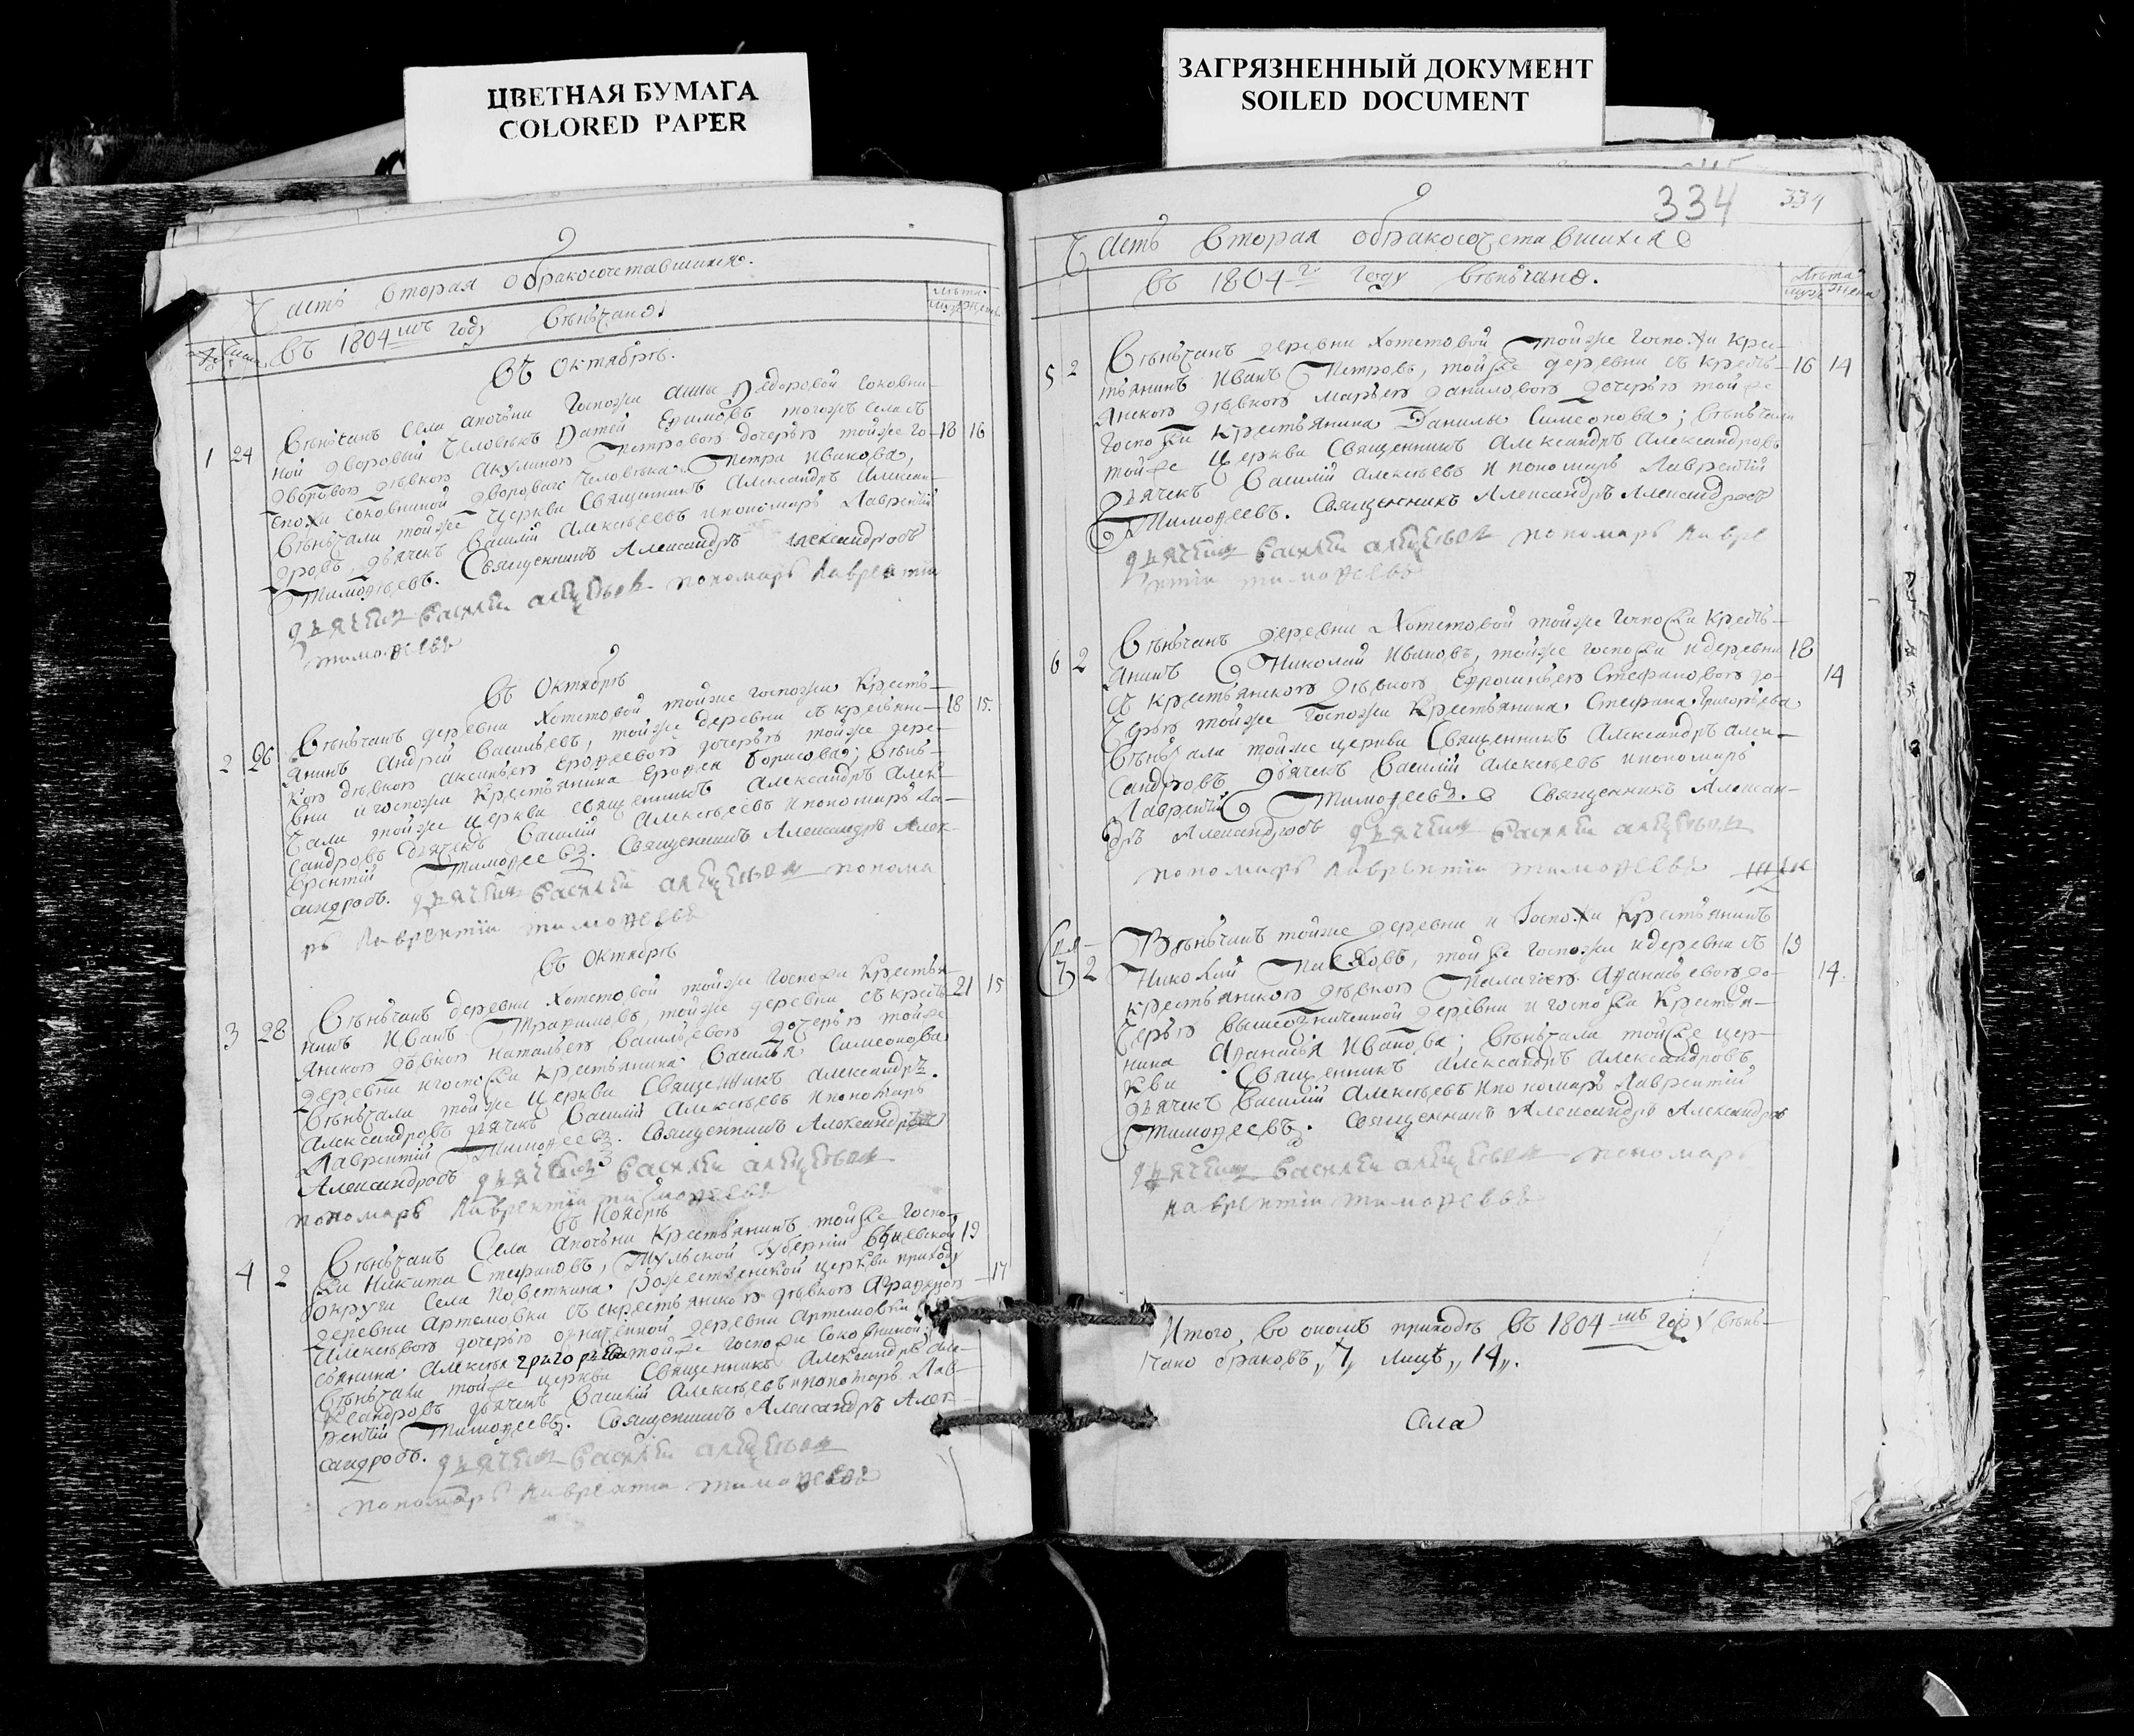 ЦВЕТНАЯ БУМАГА
COLORED PAPER
ЗАГРЯЗНЕННЫЙ ДОКУМЕНТ
SOILED DOCUMENT
Часть вторая обракосочетавшихся.
въ 1804мъ году венчано
въ Октябрѣ.
1 24
Венчанъ села апочни Госпожи анны Федоровой соковни-
ной дворовый человѣкъ Фатей Ефимовъ тогожъ села съ
дворовою дѣвкою Акулиною Петровою дочерью тойже го- 18 16
спожи соковниной двороваго человѣка Петра Иванова,
Венчали тойже церкви Священникъ Александръ Алексан-
дровъ, дьячекъ Василий Алексѣевъ и пономарь Лаврентий
Тимофѣевъ. Священникъ Александръ Александровъ
пономарь лаврентии
тимофеевъ
въ Октябрѣ
2 26
Венчанъ деревни Хотетовой тойже госпожи Кресть-
янинъ Андрей Васильевъ, тойже деревни съ крестьянс- 18 15.
кою дѣвкою аксиньею Ерофеевою дочерью тойже дере-
вни и госпожи Крестьянина Ерофея Борисова; Венч-
чали тойже церкви священникъ Александръ Алек
сандровъ дьячекъ Василий Алексѣевъ и пономарь Ла-
врентий Тимофеевъ. Священникъ Александръ Алек-
сандровъ. понома
рь лаврентии тимофеевъ
въ Октябрѣ
3 28
Венчанъ деревни Хотетовой тойже госпожи Крестья 21 15
нинъ Иванъ Трафимовъ, тойже деревни съ кресть
янскою дѣвкою Натальею Васильевою дочерью тойже
деревни и госпожи крестьянина Василья Симеонова
Венчали тойже церкви Священникъ Александръ.
Александровъ дьячекъ Василий Алексѣевъ и пономарь
Лаврентий Тимофеевъ. Священникъ Александръ
Александровъ
пономарь лаврентии тимофеевъ
въ Ноябрѣ
4 2
Венчанъ Села Апочни Крестьянинъ тойже Госпо- 19
жи Никита Стефановъ, Тульской Губернии
округи села Поветкина Рожественской церкви приходу
деревни Артемовки съ крестьянскою дѣвкою 17
Алексѣевою дочерью деревни Артемовки
Алексѣя григорьева тойже госпожи Соковниной
Венчали тойже церкви Священникъ Александръ Але-
ксандровъ дьячекъ Василий Алексѣевъ и пономарь Лав-
рентий Тимофеевъ. Священникъ Александръ Алек-
сандровъ.
пономарь лаврентии тимофеевъ
334 334
Часть вторая обракосочетавшихся
въ 1804г. году венчано.
Лѣта
5 2
Венчанъ деревни Хотетовой тойже госпожи Кре-
стьянинъ Иванъ Петровъ, тойже деревни съ кресть- 16 14
янскою дѣвкою Марьею Даниловою дочерью тойже
госпожи крестьянина Данилы Симеонова; Венчали
тойже церкви Священникъ Александръ Александровъ
Дьячекъ Василий Алексѣевъ и пономарь Лаврентий
Тимофеевъ. Священникъ Александръ Александровъ
пономарь лавре
нтии тимофеевъ
6 2
Венчанъ деревни Хотетовой тойже госпожи Кресть-
янинъ Николай Ивановъ, тойже госпожи и деревни 18
съ крестьянскою дѣвкою Ефросиньею Стефановою до- 14
черью тойже Госпожи Крестьянина Стефана Григорьева
Венчали тойже церкви Священникъ Александръ Алек-
сандровъ Дьячекъ Василий Алексѣевъ и пономарь
Лаврентий Тимофеевъ. Священникъ Алексан-
дръ Александровъ
пономарь лаврентии тимофеевъ
7 2
Венчанъ тойже деревни и Госпожи Крестьянинъ
Николай Павловъ, тойже госпожи и деревни съ 19
крестьянскою дѣвкою Пелагиею Афанасьевою до- 14.
черью вышеозначенной деревни и госпожи Крестья-
нина Афанасья Иванова; Венчали тойже цер-
кви Священникъ Александръ Александровъ
дьячекъ Василий Алексѣевъ и пономарь Лаврентий
Тимофеевъ. Священникъ Александръ Александровъ
пономарь
лаврентии тимофеевъ
Итого, во ономъ приходѣ въ 1804мъ году венч-
чано браковъ „7„ лицъ „14„.
Села